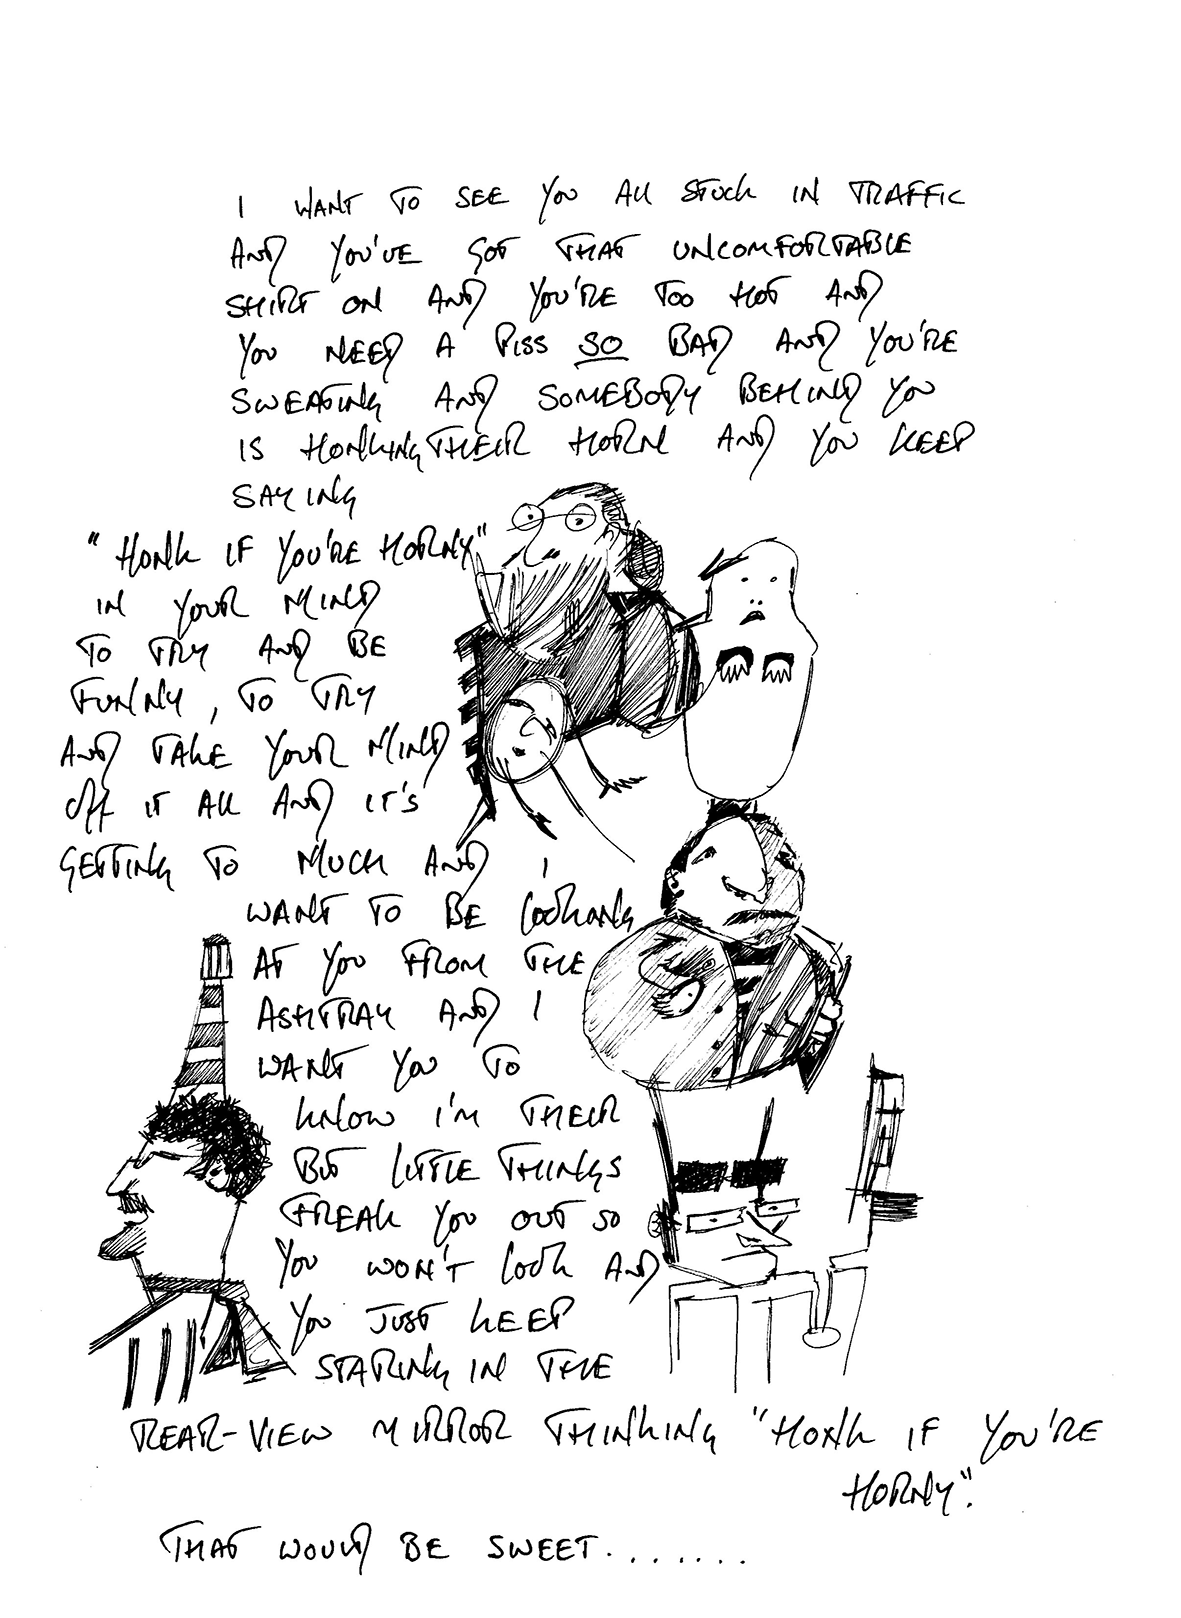 I WANT TO SEE YOU All STUCK IN TRAFFIC
AND YOU'VE GOT THAT UNCOMFORTABLE
SHIRT ON AND YOU'RE TOO HOT AND
YOU NEED A PISS SO BAD AND YOU'RE
SWEATING AND SOMEBODY BEHIND YOU
IS HONKING THEIR HORN AND YOU KEEP
SAYING
"HONK IF YOU'RE HORNY"
IN YOUR MIND
TO TRY AND BE
FUNNY, TO TRY
AND TAKE YOUR MIND
Off IT All AND IT'S
GETTING TO MUCH AND I
WANT TO BE lOOKING
AT YOU FROM THE
ASHTRAY AND I
WANT YOU TO
KNOW I'M THEIR
BUT LITTLE THINGS
FREAK YOU OUT SO
YOU WON'T lOOK AND
YOU JUST KEEP
STARING IN THE
REAR-VIEW MIRROR THINKING "HONK IF YOU'RE
HORNY".
THAT WOULD BE SWEET.......